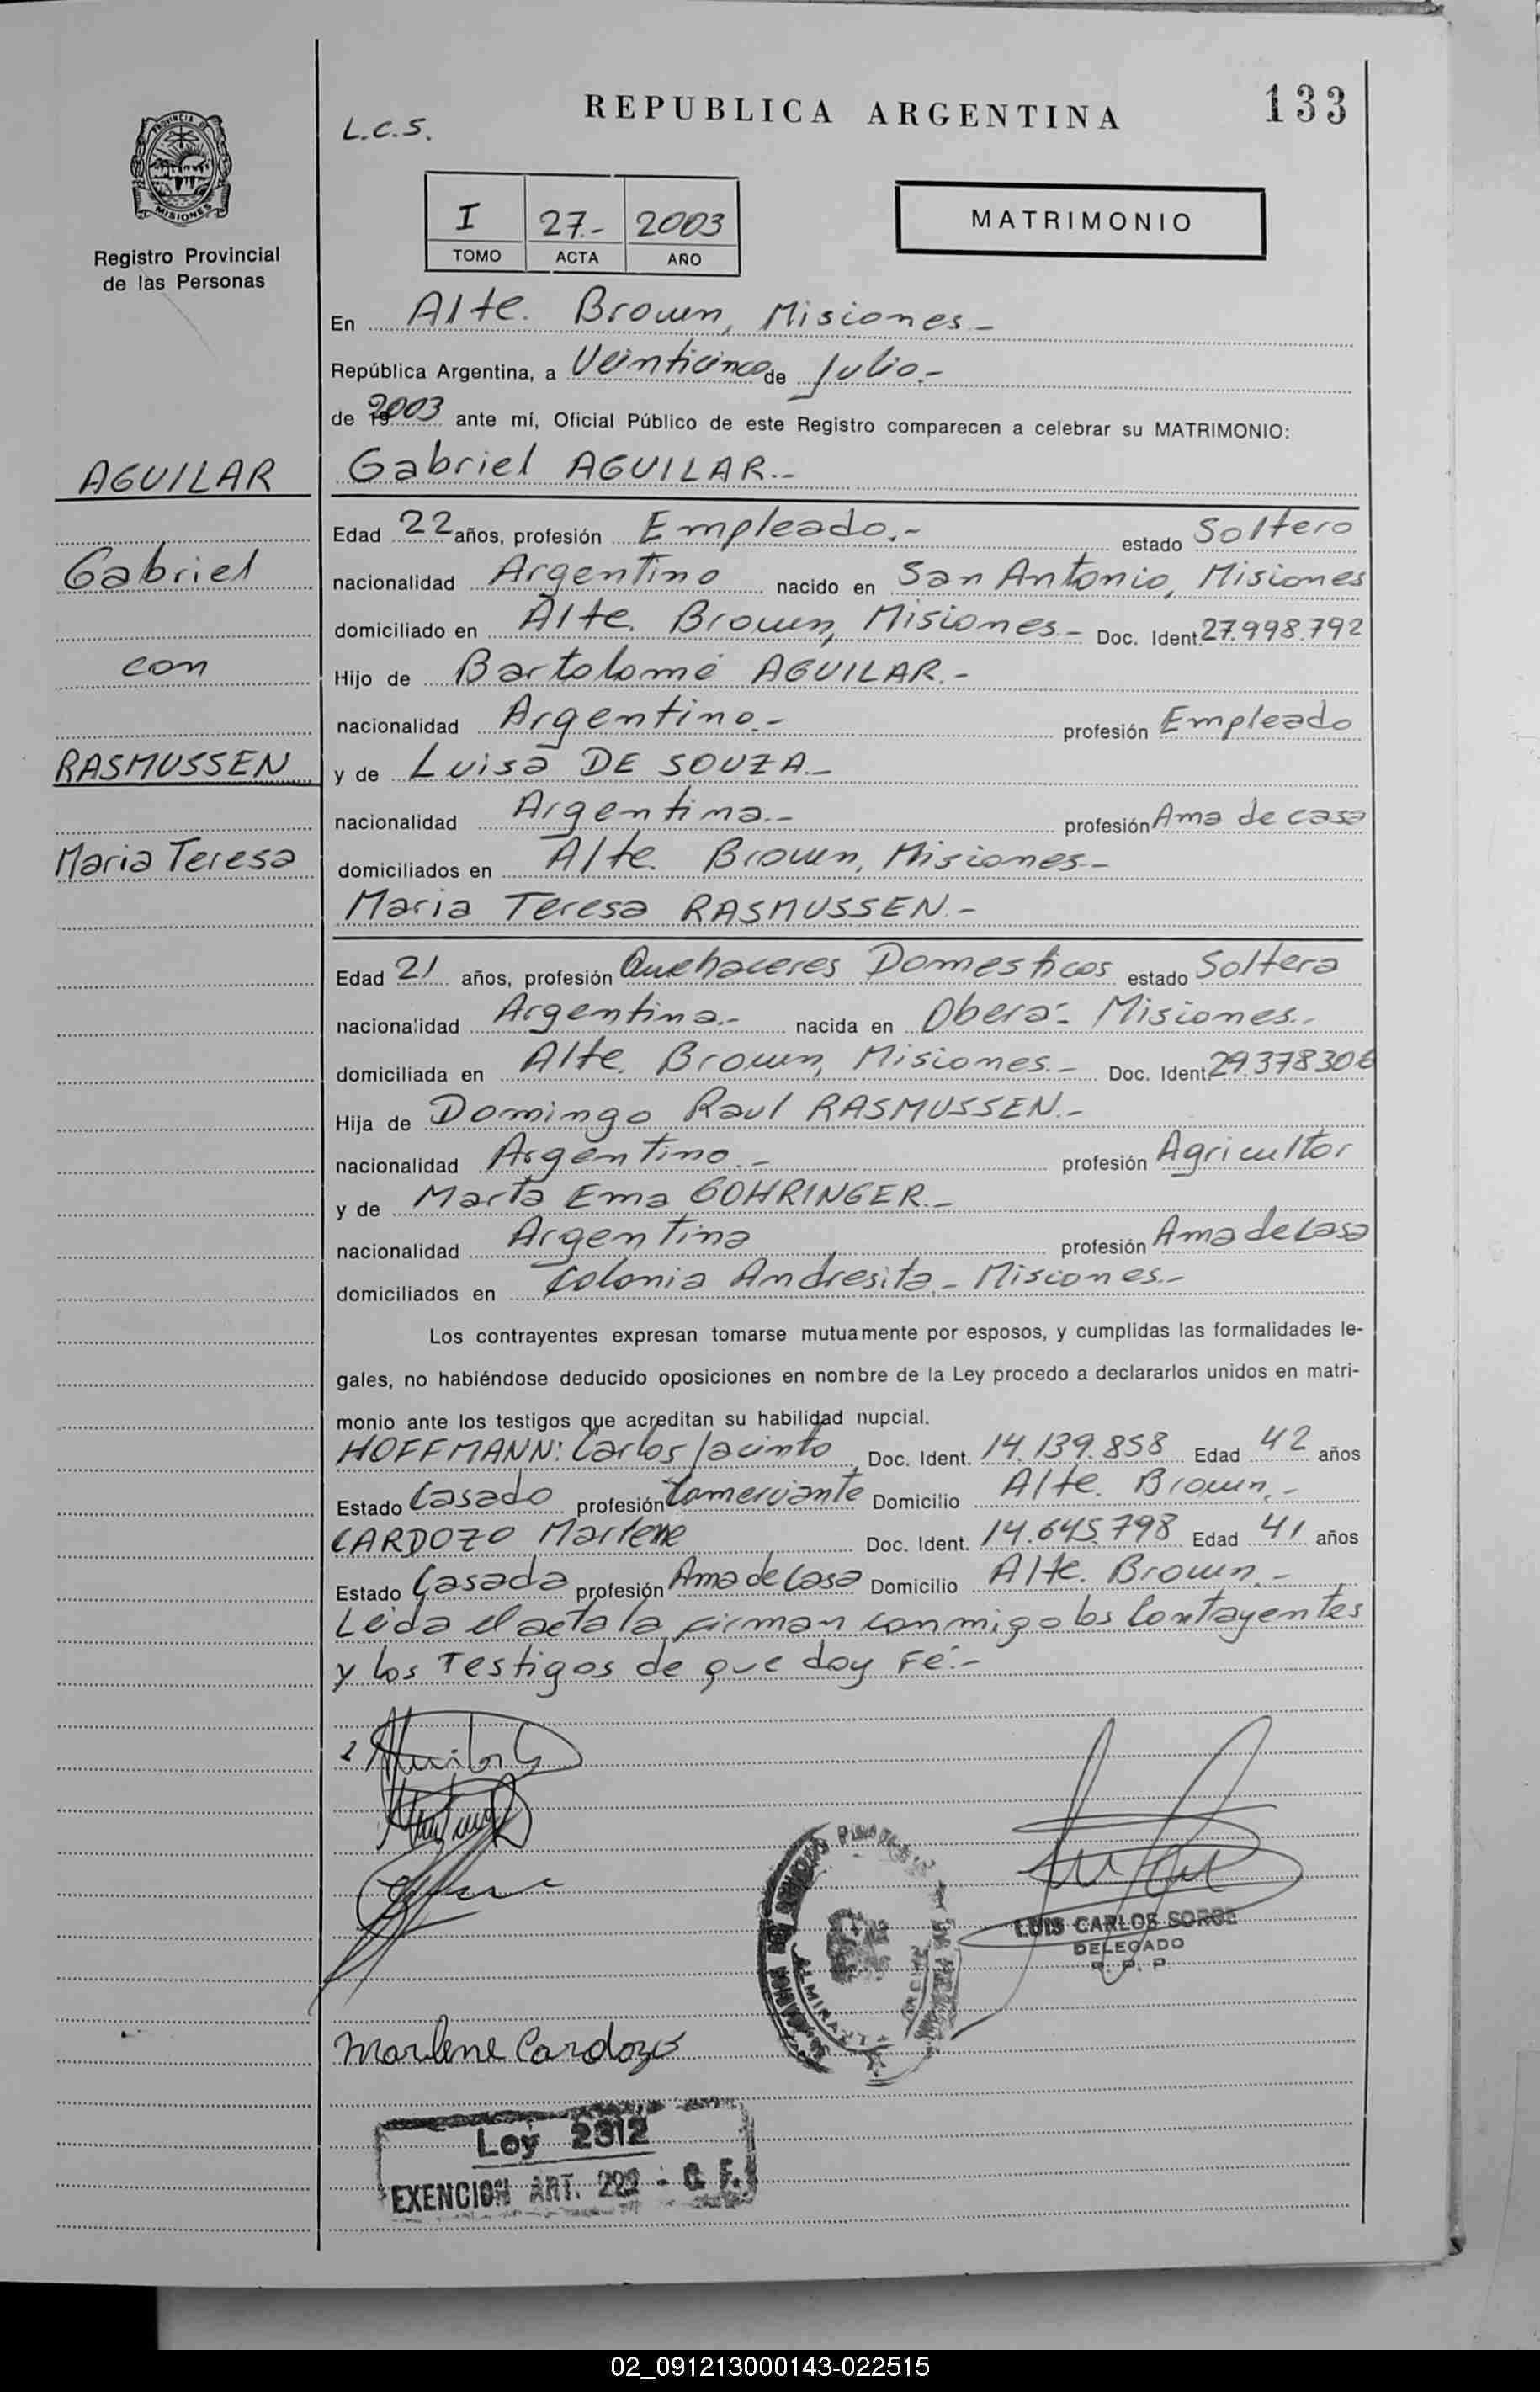 REPUBLICA ARGENTINA
133
L.C.S.
PROVINCIA DE
MISIONES
Registro Provincial
de las Personas
I 27.- 2003
TOMO ACTA AÑO
MATRIMONIO
En Alte. Brown, Misiones-
República Argentina, a Veinticinco de Julio.-
de 2003 ante mí, Oficial Público de este Registro comparecen a celebrar su MATRIMONIO:
AGUILAR
Gabriel
con
RASMUSSEN
Maria Teresa
Gabriel AGUILAR.-
Edad 22 años, profesión Empleado.- estado Soltero
nacionalidad Argentino nacido en San Antonio, Misiones
domiciliado en Alte. Brown, Misiones- Doc. Ident. 27.998.792
Hijo de Bartolomé AGUILAR.-
nacionalidad Argentino.- profesión Empleado
y de Luisa DE SOUZA.-
nacionalidad Argentina.- profesión Ama de casa
domiciliados en Alte. Brown, Misiones-
Maria Teresa RASMUSSEN.-
Edad 21 años, profesión Quehaceres Domesticos estado Soltera
nacionalidad Argentina.- nacida en Obera- Misiones.
domiciliada en Alte. Brown, Misiones.- Doc. Ident. 29.378306
Hija de Domingo Raul RASMUSSEN.-
nacionalidad Argentino.- profesión Agricultor
y de Marta Ema GOHRINGER.-
nacionalidad Argentina profesión Ama de Casa
domiciliados en Colonia Andresito.- Misiones.-
Los contrayentes expresan tomarse mutuamente por esposos, y cumplidas las formalidades le-
gales, no habiéndose deducido oposiciones en nombre de la Ley procedo a declararlos unidos en matri-
monio ante los testigos que acreditan su habilidad nupcial.
HOFFMANN: Carlos Jacinto Doc. Ident. 14.139.858 Edad 42 años
Estado Casado profesión Comerciante Domicilio Alte. Brown.-
CARDOZO Marlene Doc. Ident. 14.645.798 Edad 41 años
Estado Casada profesión Ama de Casa Domicilio Alte. Brown.-
Leida el acta la firman conmigo los Contrayentes
y los Testigos de que doy Fé.-
LUIS CARLOS SORGE
DELEGADO
R. P. P
Marlene Cardozo
Ley 2312
EXENCION ART. 222 - C. F.
02_091213000143-022515